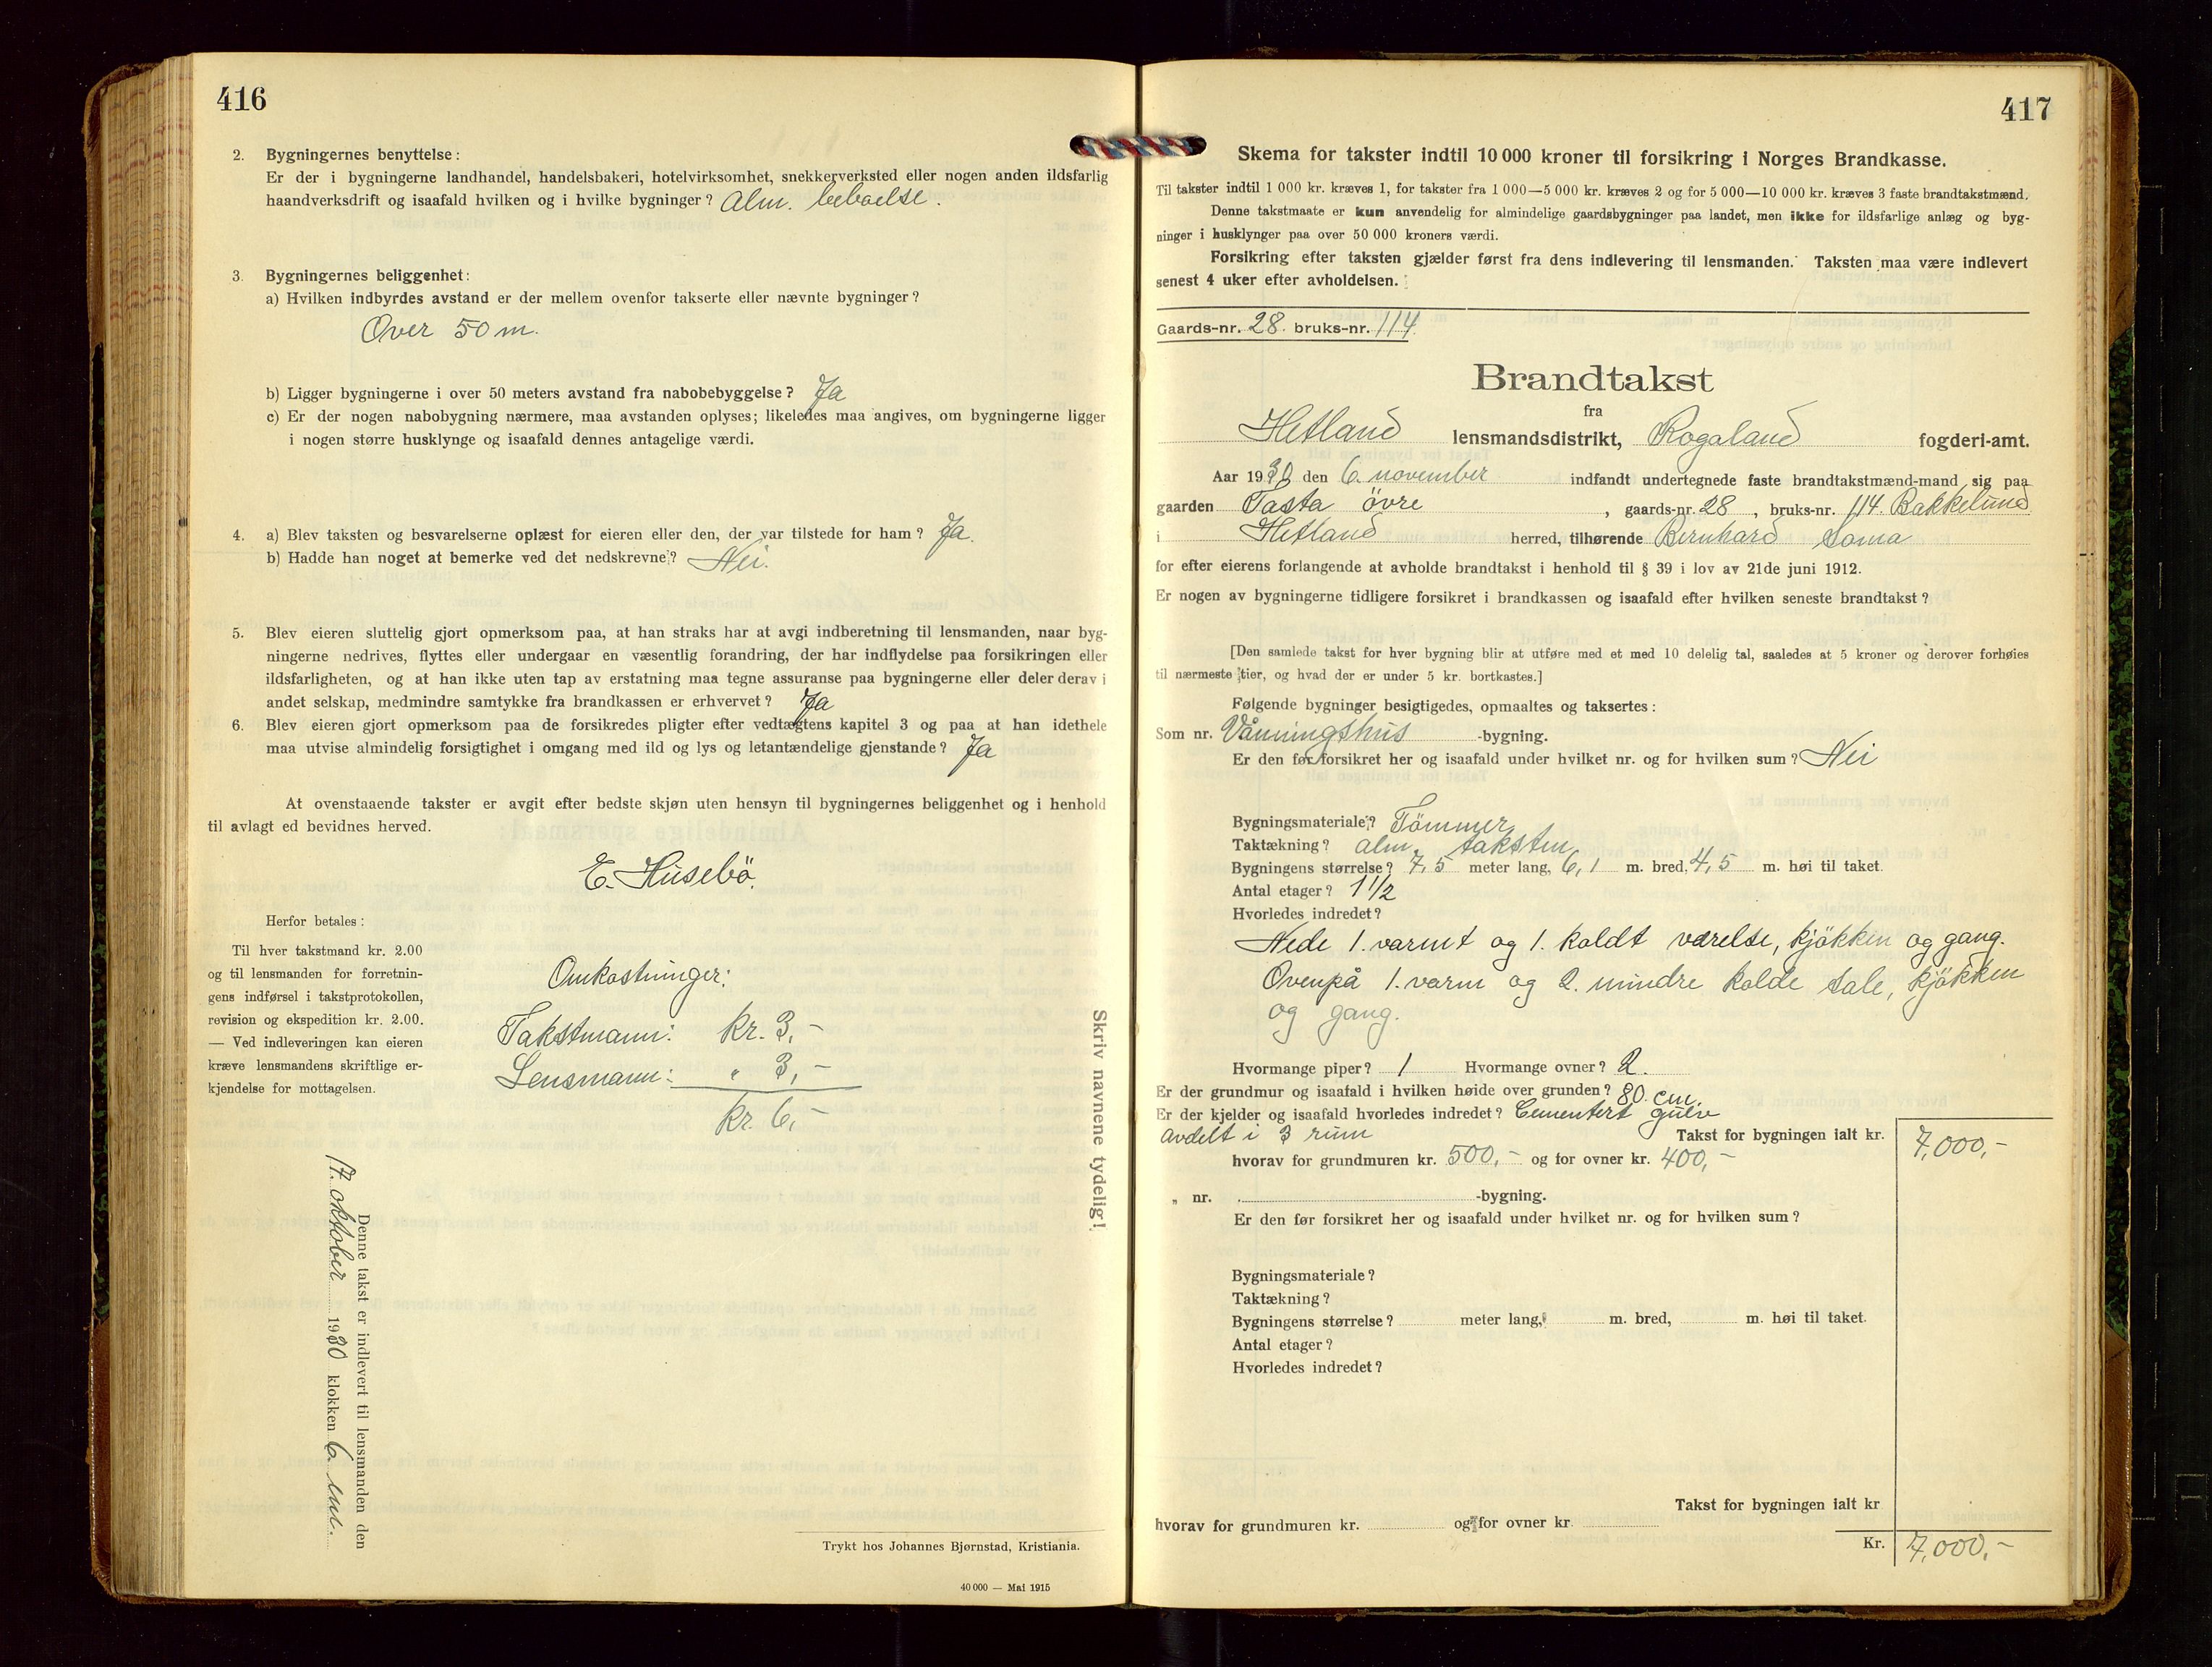 416
2. Bygningernes benyttelse:
Er der i bygningerne landhandel, handelsbakeri, hotelvirksomhet, snekkerverksted eller nogen anden ildsfarlig
haandverksdrift og isaafald hvilken og i hvilke bygninger? Alm. beboelse.
3. Bygningernes beliggenhet:
a) Hvilken indbyrdes avstand er der mellem ovenfor takserte eller nævnte bygninger?
Over 50 m.
b) Ligger bygningerne i over 50 meters avstand fra nabobebyggelse? Ja
c) Er der nogen nabobygning nærmere, maa avstanden oplyses; likeledes maa angives, om bygningerne ligger
i nogen større husklynge og isaafald dennes antagelige værdi.
4. a) Blev taksten og besvarelserne oplæst for eieren eller den, der var tilstede for ham? Ja.
b) Hadde han noget at bemerke ved det nedskrevne? Nei.
5. Blev eieren sluttelig gjort opmerksom paa, at han straks har at avgi indberetning til lensmanden, naar byg-
ningerne nedrives, flyttes eller undergaar en væsentlig forandring, der har indflydelse paa forsikringen eller
ildsfarligheten, og at han ikke uten tap av erstatning maa tegne assuranse paa bygningerne eller deler derav i
andet selskap, medmindre samtykke fra brandkassen er erhvervet? Ja
6. Blev eieren gjort opmerksom paa de forsikredes pligter efter vedtægtens kapitel 3 og paa at han idethele
maa utvise almindelig forsigtighet i omgang med ild og lys og letantændelige gjenstande? Ja
At ovenstaaende takster er avgit efter bedste skjøn uten hensyn til bygningernes beliggenhet og i henhold
til avlagt ed bevidnes herved.
E. Husebö.
Herfor betales:
Til hver takstmand kr. 2.00
og til lensmanden for forretnin-
gens indførsel i takstprotokollen,
revision og ekspedition kr. 2.00.
— Ved indleveringen kan eieren
kræve lensmandens skriftlige er-
kjendelse for mottagelsen.
Omkostninger:
Takstmann: kr. 3,-
Lensmann: " 3,-
kr. 6,-
Skriv navnene tydelig!
Denne takst er indlevert til lensmanden den
17. oktober 1930 klokken 6. em.
Trykt hos Johannes Bjørnstad, Kristiania.
40 000 — Mai 1915
417
Skema for takster indtil 10 000 kroner til forsikring i Norges Brandkasse.
Til takster indtil 1 000 kr. kræves 1, for takster fra 1 000—5 000 kr. kræves 2 og for 5 000—10 000 kr. kræves 3 faste brandtakstmænd.
Denne takstmaate er kun anvendelig for almindelige gaardsbygninger paa landet, men ikke for ildsfarlige anlæg og byg-
ninger i husklynger paa over 50 000 kroners værdi.
Forsikring efter taksten gjælder først fra dens indlevering til lensmanden. Taksten maa være indlevert
senest 4 uker efter avholdelsen.
Gaards-nr. 28. bruks-nr. 114.
Brandtakst
fra
Hetland lensmandsdistrikt, Rogaland fogderi-amt.
Aar 1930 den 6. november indfandt undertegnede faste brandtakstmænd-mand sig paa
gaarden Tasta övre, gaards-nr. 28, bruks-nr. 114. Bakkelund
i Hetland herred, tilhørende Bernhard Soma
for efter eierens forlangende at avholde brandtakst i henhold til § 39 i lov av 21de juni 1912.
Er nogen av bygningerne tidligere forsikret i brandkassen og isaafald efter hvilken seneste brandtakst?
[Den samlede takst for hver bygning blir at utføre med et med 10 delelig tal, saaledes at 5 kroner og derover forhøies
til nærmeste tier, og hvad der er under 5 kr. bortkastes.]
Følgende bygninger besigtigedes, opmaaltes og taksertes:
Som nr. Våningshus -bygning.
Er den før forsikret her og isaafald under hvilket nr. og for hvilken sum? Nei
Bygningsmateriale? Tömmer
Taktækning? alm. taksten
Bygningens størrelse? 7,5 meter lang, 6,1 m. bred, 4,5 m. høi til taket.
Antal etager? 1 1/2
Hvorledes indredet?
Nede 1. varmt og 1. koldt værelse, kjökken og gang.
Ovenpå 1. varm og 2. mindre kolde sale, kjökken
og gang.
Hvormange piper? 1 Hvormange ovner? 2.
Er der grundmur og isaafald i hvilken høide over grunden? 80. cm.
Er der kjelder og isaafald hvorledes indredet? Cementert gulv
avdelt i 3 rum Takst for bygningen ialt kr. 7,000,-
hvorav for grundmuren kr. 500,- og for ovner kr. 400,-
„ nr. -bygning.
Er den før forsikret her og isaafald under hvilket nr. og for hvilken sum?
Bygningsmateriale?
Taktækning?
Bygningens størrelse? meter lang, m. bred, m. høi til taket.
Antal etager?
Hvorledes indredet?
Takst for bygningen ialt kr
hvorav for grundmuren kr. og for ovner kr.
Kr. 7,000,-